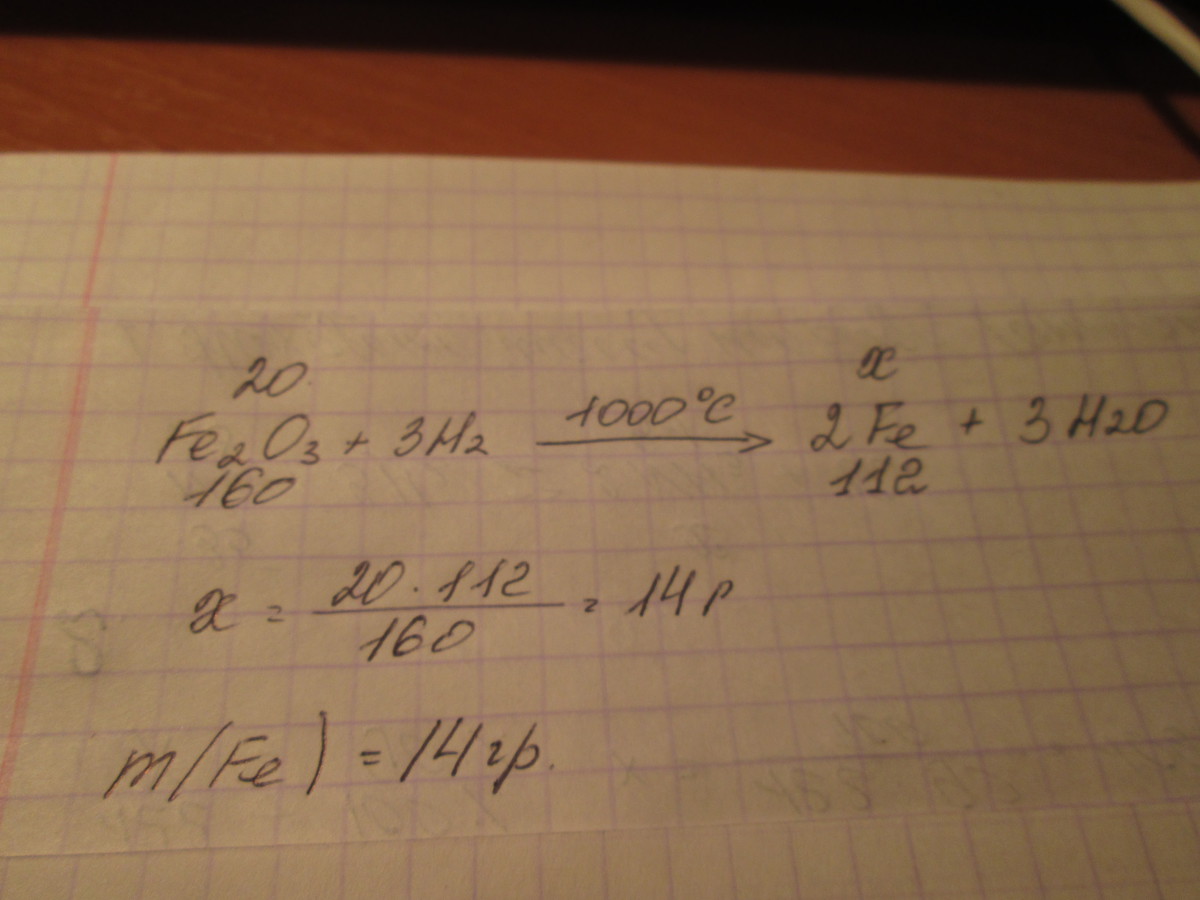 20 x
Fe₂O₃ + 3H₂ 1000°C → 2Fe + 3H₂O
160 112
x = 20 · 112 / 160 = 14 г
m(Fe) = 14 гр.